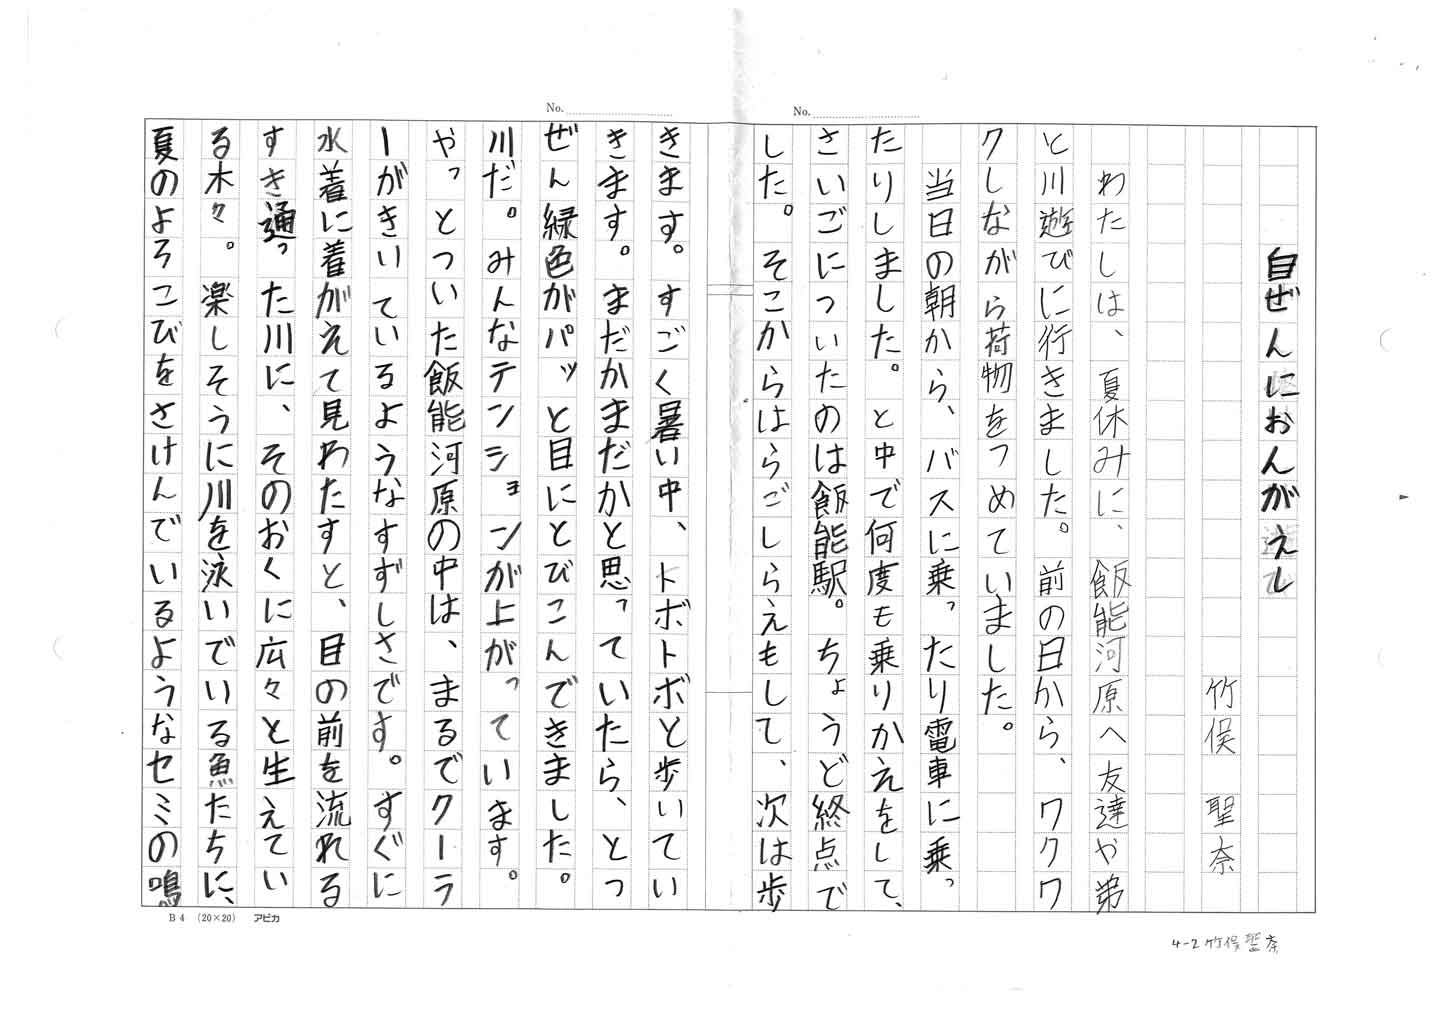 No.
No.
自ぜんにおんがえし
竹俣 聖奈
わたしは、夏休みに、飯能河原へ友達や弟
と川遊びに行きました。前の日から、ワクワ
クしながら荷物をつめていました。
当日の朝から、バスに乗ったり電車に乗っ
たりしました。と中で何度も乗りかえをして、
さいごについたのは飯能駅。ちょうど終点で
した。そこからはらごしらえもして、次は歩
きます。すごく暑い中、トボトボと歩いてい
きます。まだかまだかと思っていたら、とつ
ぜん緑色がパッと目にとびこんできました。
川だ。みんなテンションが上がっています。
やっとついた飯能河原の中は、まるでクーラ
ーがきいているようなすずしさです。すぐに
水着に着がえて見わたすと、目の前を流れる
すき通った川に、そのおくに広々と生えてい
る木々。楽しそうに川を泳いでいる魚たちに、
夏のよろこびをさけんでいるようなセミの鳴
B4 (20×20) アピカ
4-2 竹俣 聖奈